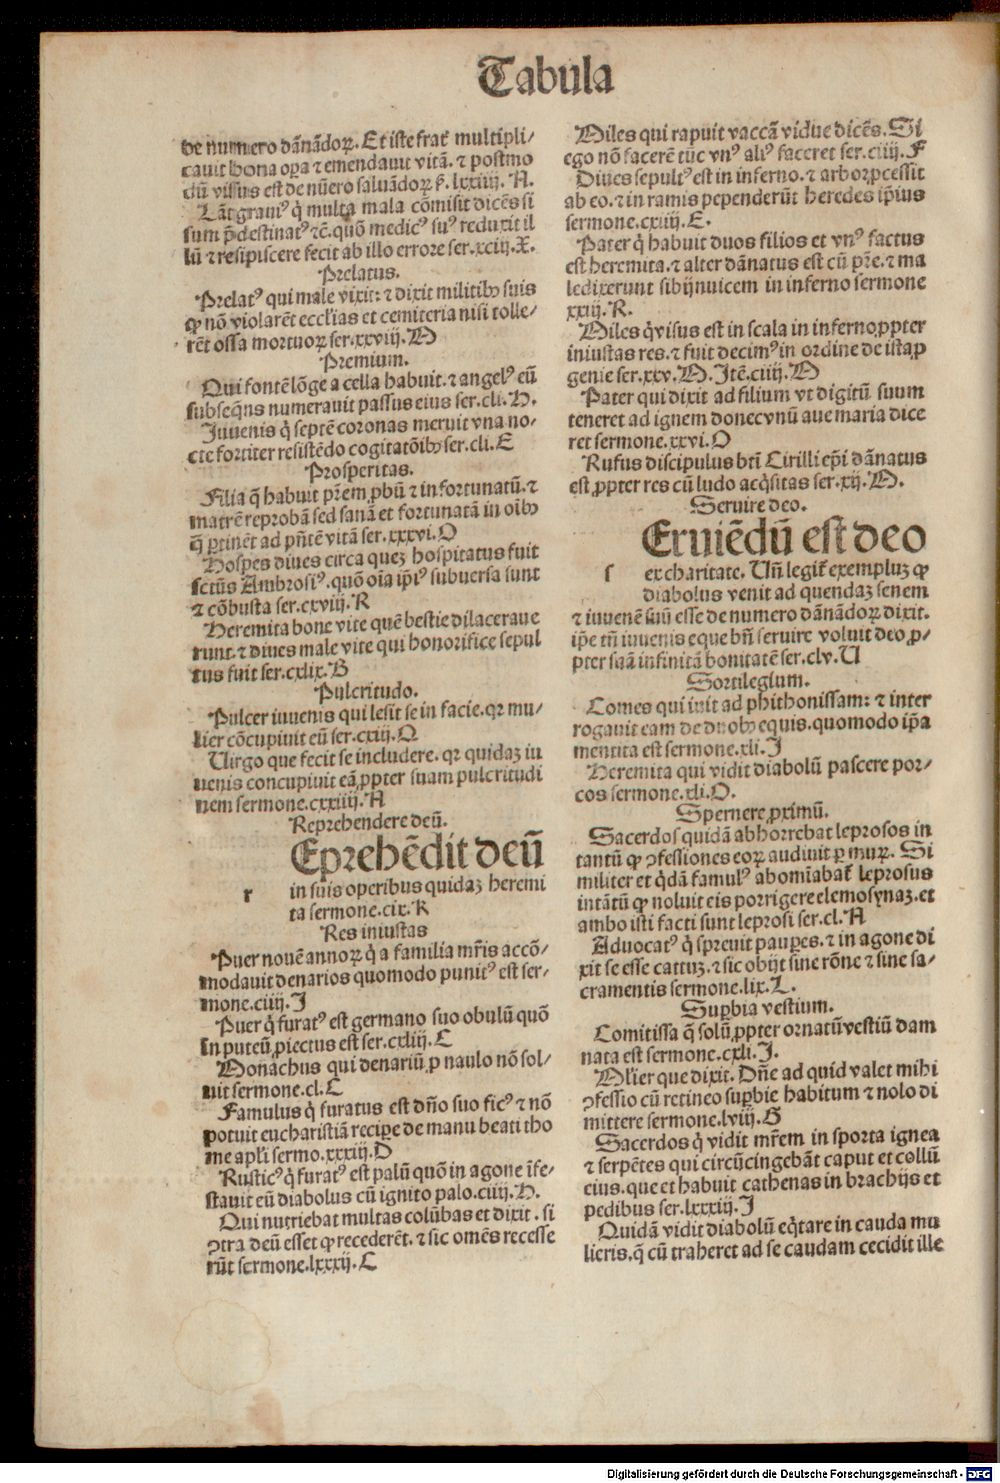 Tabula
de numero dãnãdoꝝ. Et iste frat᷑ multipli⸗
cauit bona oꝑa ⁊ emendauit vitã. ⁊ postmo
dũ visus est de nũero saluãdoꝝ ẜ. lxxiiij. A.
Lãt grauiꝰ q̇ multa mala cõmisit dicẽs si
sum p̃destinatꝰ ⁊c̃. quõ medicꝰ suꝰ reduxit il
lũ ⁊ resipiscere fecit ab illo errore ser. xciij. X.
Prelatus.
Prelatꝰ qui male vixit: ⁊ dixit militibꝰ suis
ꝙ nõ violarẽt eccl̃ias et cemiteria nisi tolle⸗
rẽt ossa mortuoꝝ ser. xxviij. M
Premium.
Qui fontẽ lõge a cella habuit. ⁊ angelꝰ eũ
subseq̃ns numerauit passus eius ser. cli. H.
Iuuenis q̇ septẽ coronas meruit vna no⸗
cte fortiter resistẽdo cogitatõibꝰ ser. cli. E
Prosperitas.
Filia q̃ habuit pr̃em ꝓbũ ⁊ infortunatũ. ⁊
matrẽ reprobã sed sanã et fortunatã in oĩbꝰ
q̃ ꝑtinẽt ad pñtẽ vitã ser. xxxvi. O
Hospes diues circa quez hospitatus fuit
sctũs Ambrosiꝰ. quõ oĩa ip̃iꝰ subuersa sunt
⁊ cõbusta ser. cxviij. R
Heremita bone vite quẽ bestie dilaceraue
runt. ⁊ diues male vite qui honorifice sepul
tus fuit ser. cxlix. B
Pulcritudo.
Pulcer iuuenis qui lesit se in facie. qꝛ mu⸗
lier cõcupiuit eũ ser. cxiij. Q
Uirgo que fecit se includere. qꝛ quidaz iu
uenis concupiuit eã ꝓpter suam pulcritudi
nem sermone. cxxiiij. A
Reprehendere deũ.
r Eprehẽdit deũ
in suis operibus quidaz heremi
ta sermone. cix. K
Res iniustas
Puer nouẽ annoꝝ q̇ a familia mr̃is accõ⸗
modauit denarios quomodo punitꝰ est ser⸗
mone. ciiij. I
Puer q̇ furatꝰ est germano suo obulũ quõ
in puteũ ꝓiectus est ser. cxliij. C
Monachus qui denariũ ꝓ naulo nõ sol⸗
uit sermone. cl. C
Famulus q̇ furatus est dño suo ficꝰ ⁊ nõ
potuit eucharistiã recipe de manu beati tho
me apl̃i sermo. xxxiij. D
Rusticꝰ q̇ furatꝰ est palũ quõ in agone ĩfe⸗
stauit eũ diabolus cũ ignito palo. ciiij. H.
Qui nutriebat multas colũbas et dixit. si
ꝯtra deũ esset ꝙ recederẽt. ⁊ sic omẽs recesse
rũt sermone. lxxxij. C
Miles qui rapuit vaccã vidue dicẽs. Si
ego nõ facerẽ tũc vnꝰ aliꝰ faceret ser. ciiij. F
Diues sepultꝰ est in inferno. ⁊ arbor ꝓcessit
ab eo. ⁊ in ramis pependerũt heredes ip̃ius
sermone. cxiiij. E.
Pater q̇ habuit duos filios et vnꝰ factus
est heremita. ⁊ alter dãnatus est cũ pr̃e. ⁊ ma
ledixerunt sibijnuicem in inferno sermone
xxij. R.
Miles q̇ visus est in scala in inferno ꝓpter
iniustas res. ⁊ fuit decimꝰ in ordine de ista ꝓ
genie ser. xxv. M. Itẽ. ciiij. M
Pater qui dixit ad filium vt digitũ suum
teneret ad ignem donec vnũ aue maria dice
ret sermone. xxvi. O
Rufus discipulus btĩ Cirilli ep̃i dãnatus
est ꝓpter res cũ ludo acq̇sitas ser. xij. M.
Seruire deo.
s Eruiẽdũ est deo
ex charitate. Uñ legit᷑ exempluz ꝙ
diabolus venit ad quendaz senem
⁊ iuuenẽ suũ esse de numero dãnãdoꝝ dixit.
ip̃e tñ iuuenis eque bñ seruire voluit deo ꝓ⸗
pter suã infinitã bonitatẽ ser. clv. U
Sortilegium.
Comes qui iuit ad phithonissam: ⁊ inter
rogauit eam de duobꝰ equis. quomodo ip̃a
mentita est sermone. xli. I
Heremita qui vidit diabolũ pascere por⸗
cos sermone. xli. O.
Spernere ꝓximũ.
Sacerdos quidã abhorrebat leprosos in
tantũ ꝙ ꝯfessiones eoꝝ audiuit ꝑ muꝝ. Si
militer et q̇dã famulꝰ abomĩabat᷑ leprosus
intãtũ ꝙ noluit eis porrigere elemosynaz. et
ambo isti facti sunt leprosi ser. cl. A
Aduocatꝰ q̇ spreuit pauꝑes. ⁊ in agone di
xit se esse cattuz. ⁊ sic obijt sine rõne ⁊ sine sa⸗
cramentis sermone. lix. L.
Suꝑbia vestium.
Comitissa q̃ solũ ꝓpter ornatũ vestiũ dam
nata est sermone. cxli. I.
Ml̃ier que dixit. Dñe ad quid valet mihi
ꝯfessio cũ retineo suꝑbie habitum ⁊ nolo di
mittere sermone. lviij. G
Sacerdos q̇ vidit mr̃em in sporta ignea
⁊ serpẽtes qui circũcingebãt caput et collũ
eius. que et habuit cathenas in brachijs et
pedibus ser. lxxxiij. I
Quidã vidit diabolũ eq̇tare in cauda mu
lieris. q̃ cũ traheret ad se caudam cecidit ille
Digitalisierung gefördert durch die Deutsche Forschungsgemeinschaft - DFG